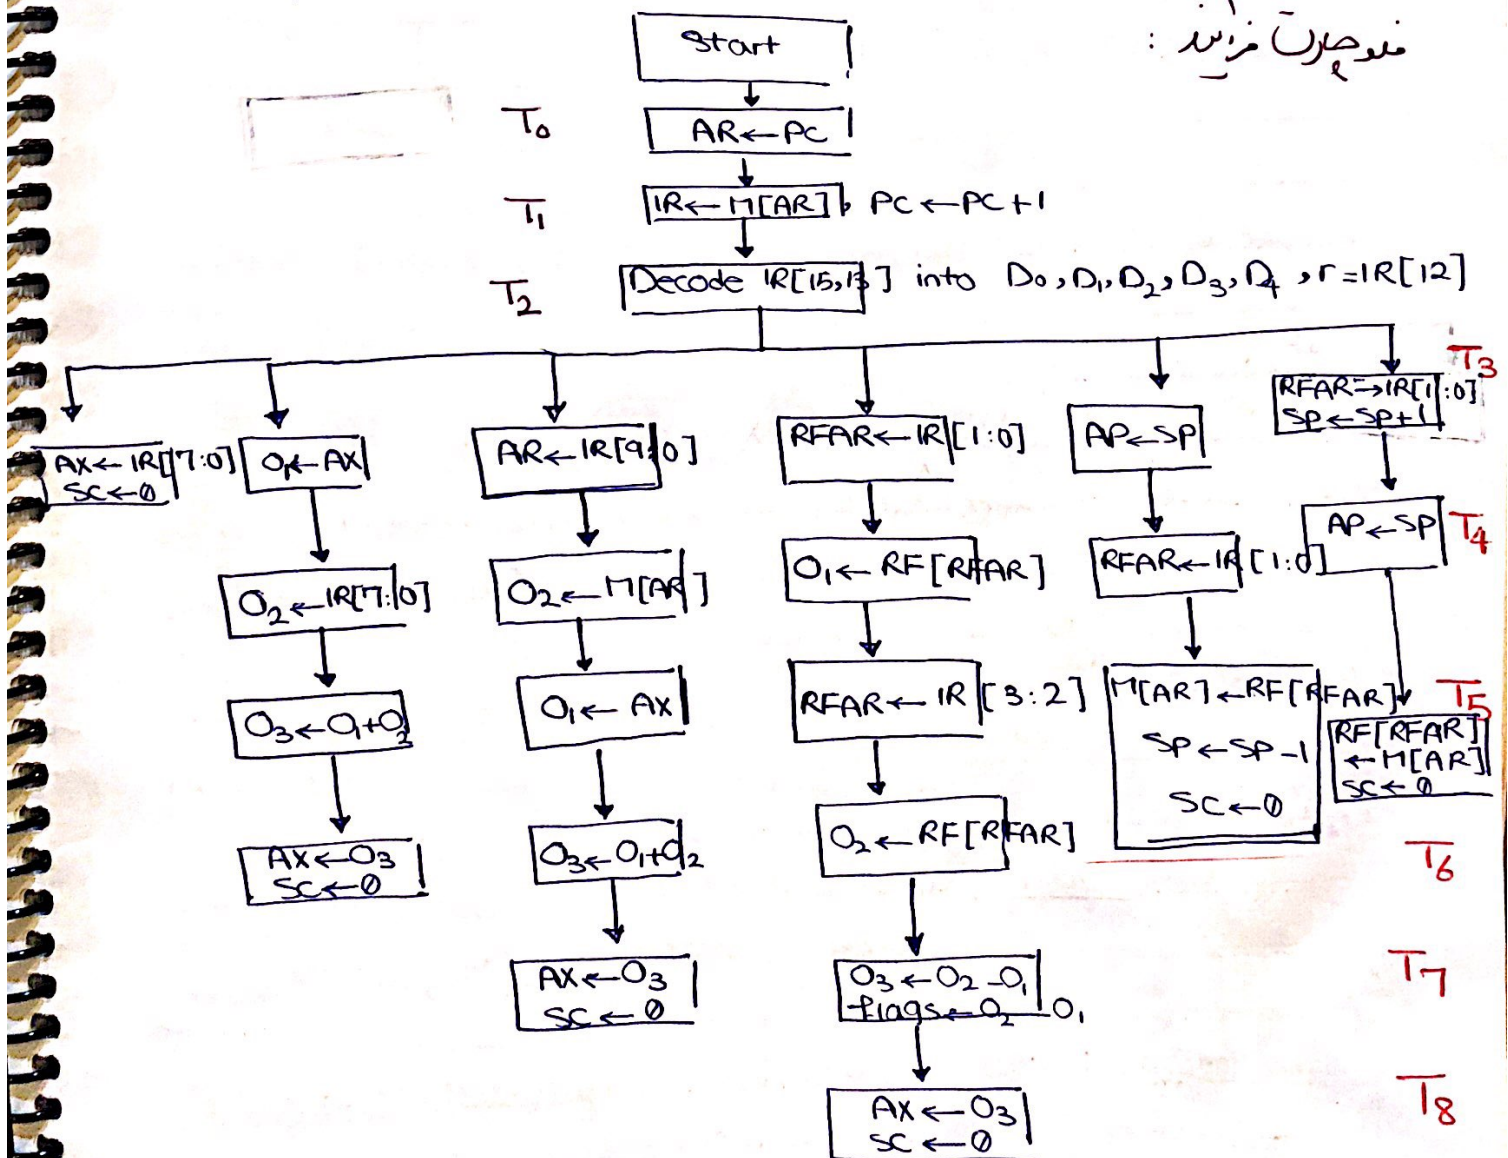 فلوچارت فرآیند :
Start
T0
AR←PC
T1
IR←M[AR], PC←PC+1
T2
Decode IR[15,13] into D0, D1, D2, D3, D4, r=IR[12]
T3
AX←IR[7:0]
SC←0
O1←AX
O2←IR[7:0]
O3←O1+O2
AX←O3
SC←0
AR←IR[9:0]
O2←M[AR]
O1←AX
O3←O1+O2
AX←O3
SC←0
RFAR←IR[1:0]
O1←RF[RFAR]
RFAR←IR[3:2]
O2←RF[RFAR]
O3←O2-O1
flags←O2-O1
AX←O3
SC←0
AP←SP
RFAR←IR[1:0]
M[AR]←RF[RFAR]
SP←SP-1
SC←0
RFAR→IR[1:0]
SP←SP+1
AP←SP
T4
T5
RF[RFAR]
←M[AR]
SC←0
T6
T7
T8